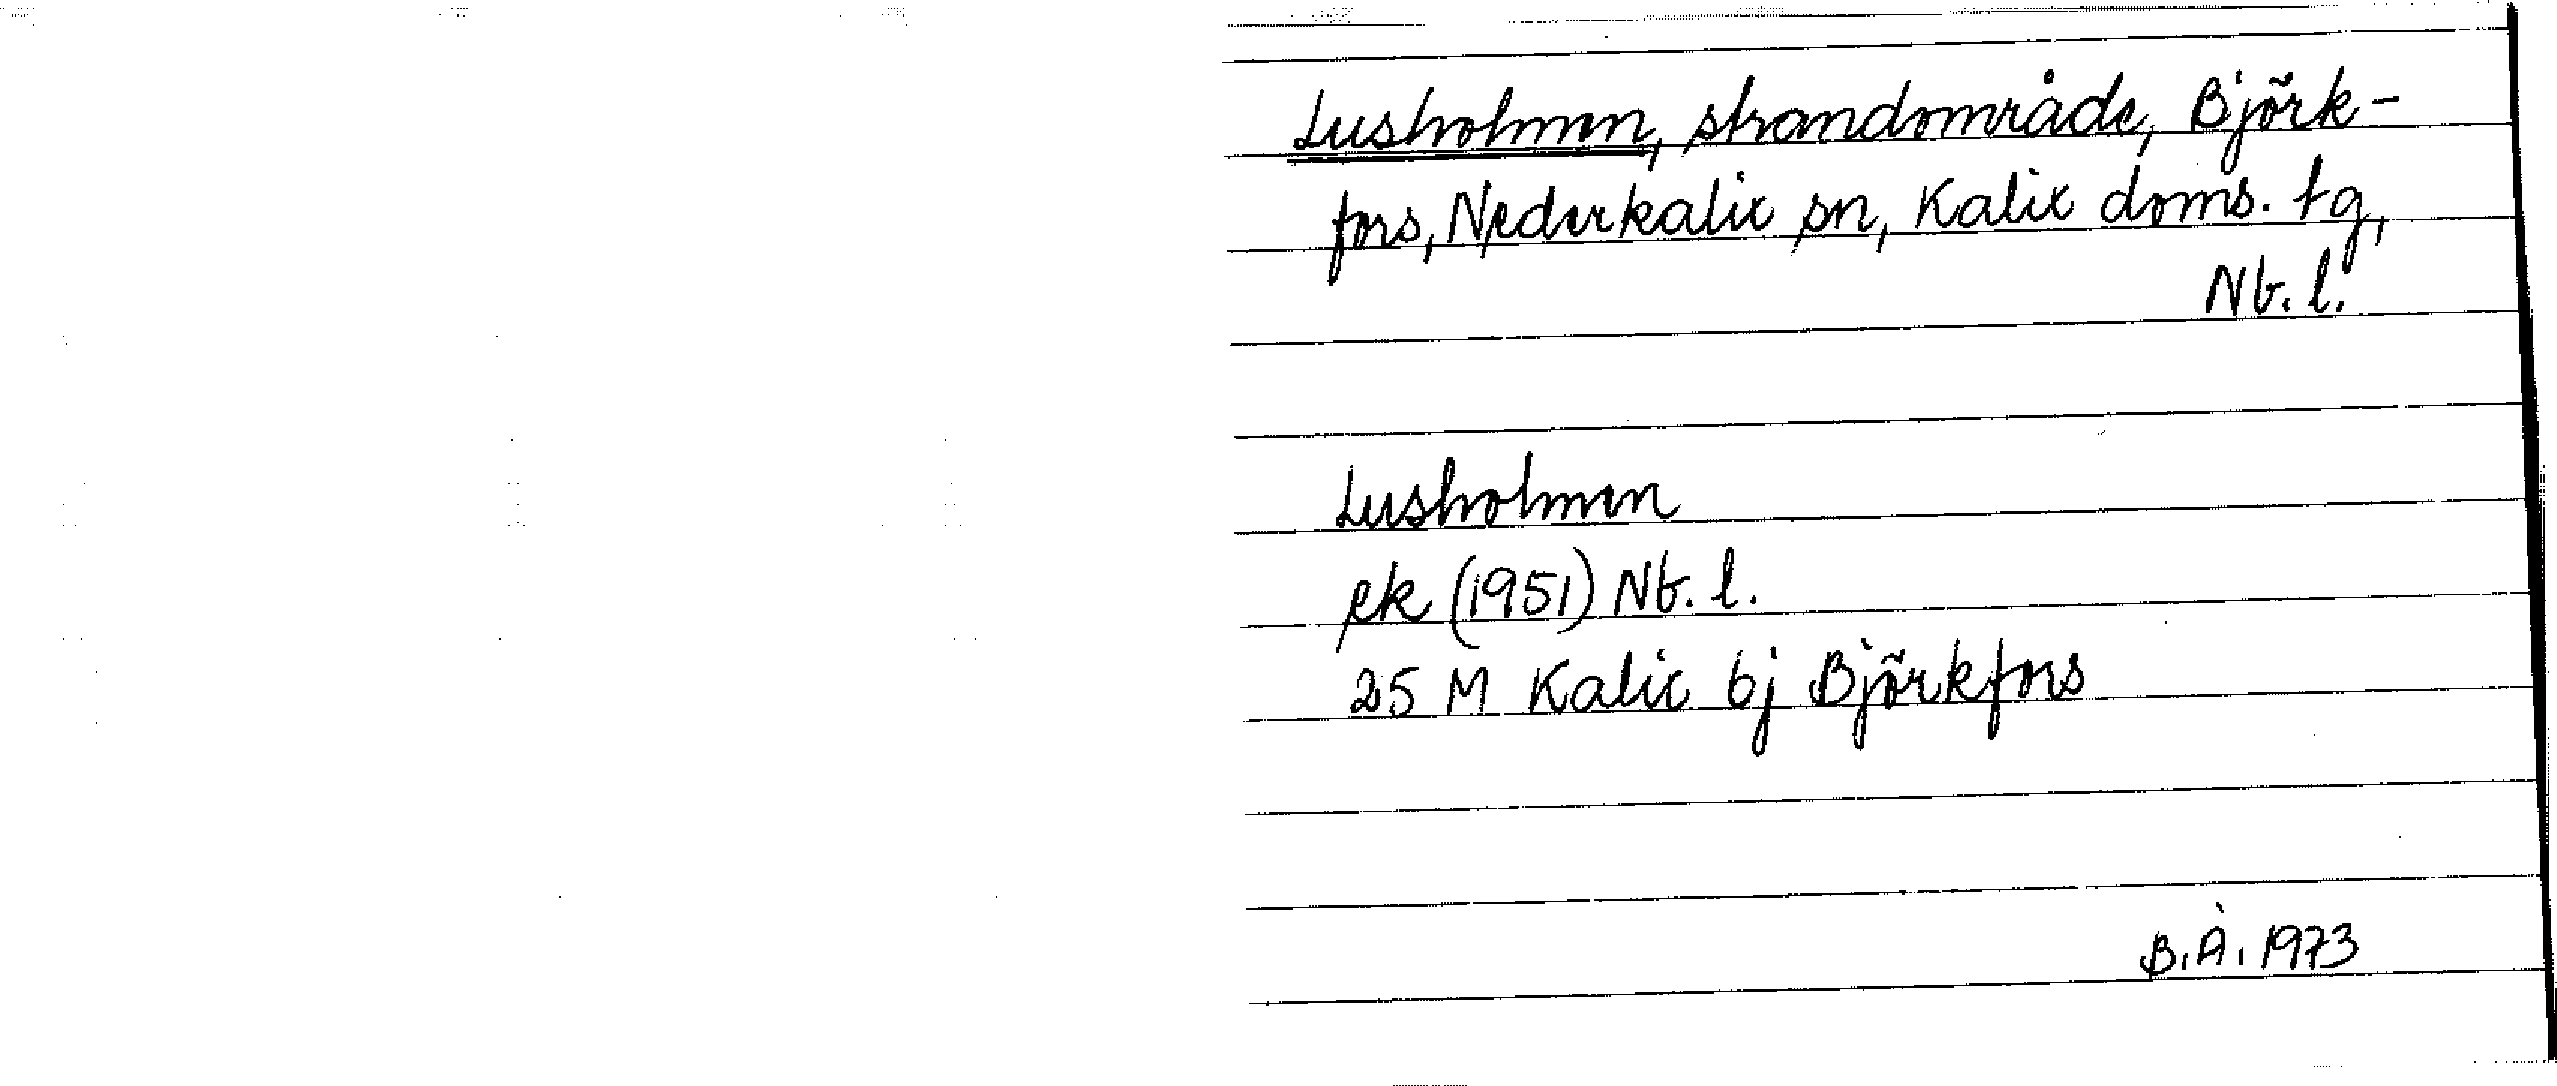 Lusholmen, strandområde, Björk-
fors, Nederkalix sn, Kalix doms. tg,
Nb. l.
Lusholmen
ek (1951) Nb. l.
25 M Kalix 6j Björkfors
B. Å. 1973